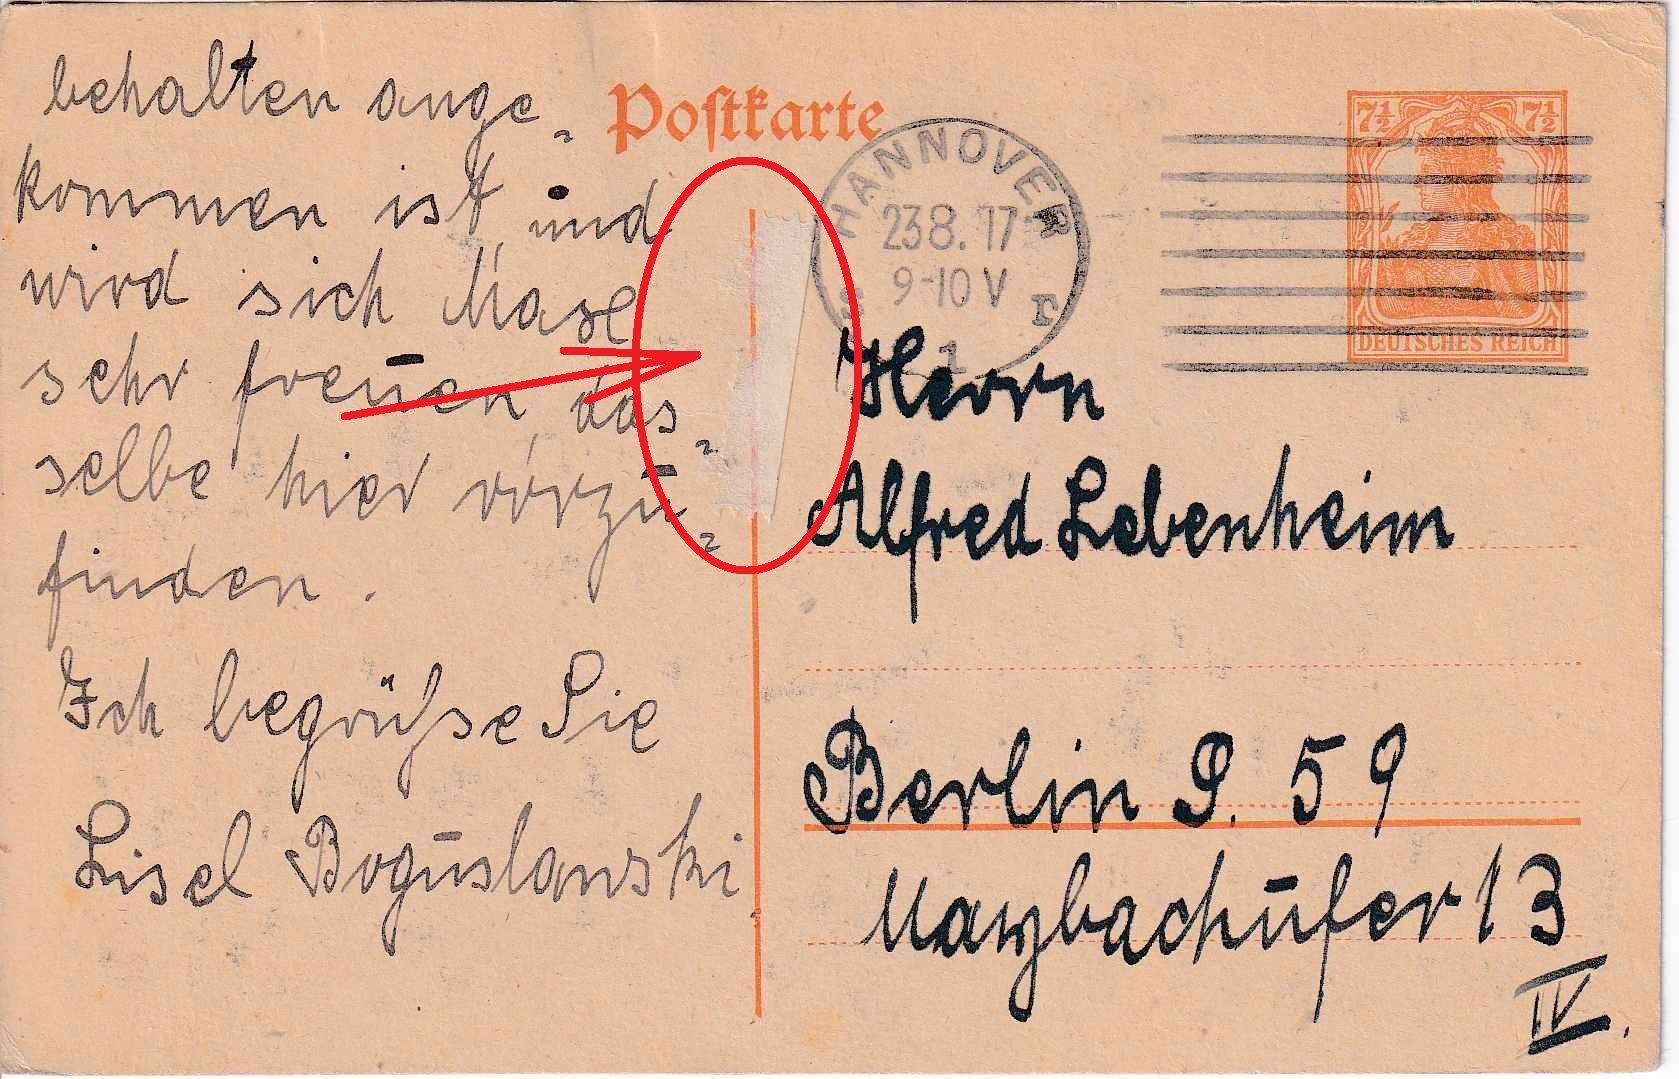 behalten ange-
kommen ist und
wird sich Mase
sehr freuen das-
selbe hier vorzu-
finden.
Ich begrüsse Sie
Lisel Boguslawski.
Postkarte
HANNOVER
23.8.17
9-10 V
1 r
7½ 7½
DEUTSCHES REICH
Herrn
Alfred Lebenheim
Berlin S. 59
Maybachufer 13
IV.